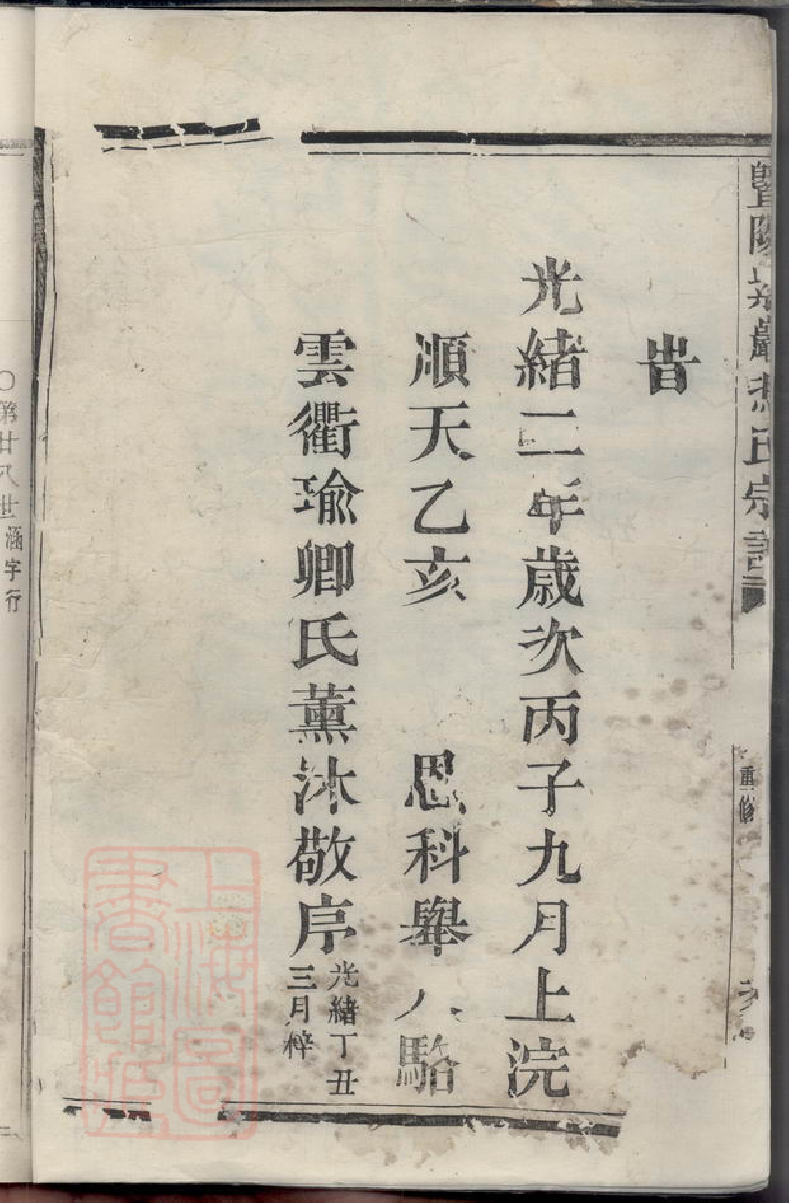 岩
光緒二年歲次丙子九月上浣
順天乙亥　恩科舉人駱
雲衢瑜卿氏薰沐敬序
光緒丁丑
三月梓
氏宗譜
重修
上海圖
書館藏
〇第廿八世涵字行